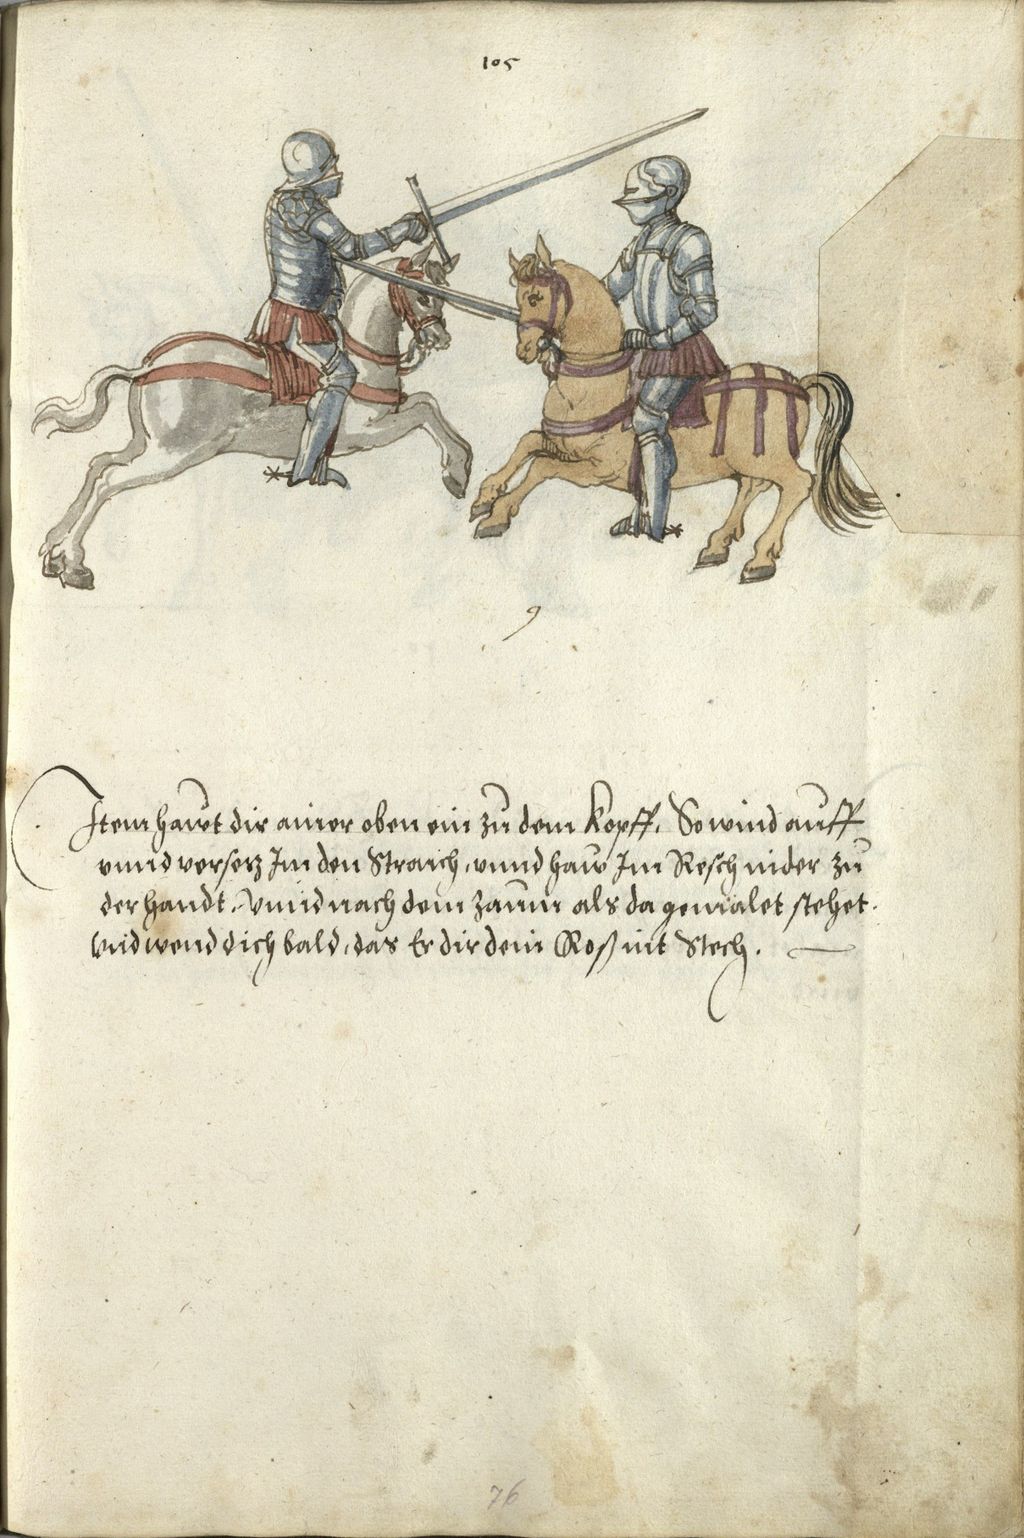 105
9
Item hawt dir ainer oben ein zu dem kopff, So wind auff
vnnd versetz Im den Straich, vnnd haw Im Resch nider zu
der handt, Vnnd nach dem zaum als da gemalet stehet.
Vnd wend dich bald, das Er dir dein Roß nit Stech.
76